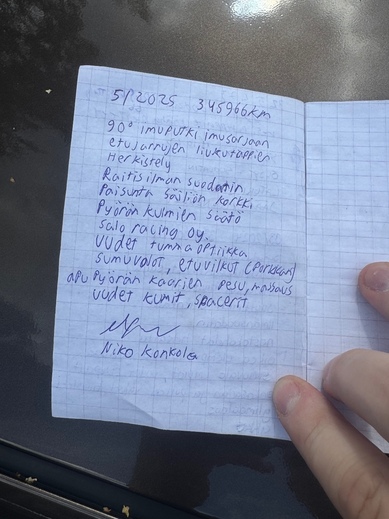 5/2025 345966km
90° imuputki imusarjaan
etujarrujen liukutappien
Herkistely
Raitisilman suodatin
Paisunta säiliön korkki
Pyörän kulmien säätö
Salo racing oy
Uudet tumma optiikka
sumuvalot, etuvilkut (parkkari)
apu Pyörän kaarien pesu, massaus
uudet kumit, spacerit
Niko Konkola